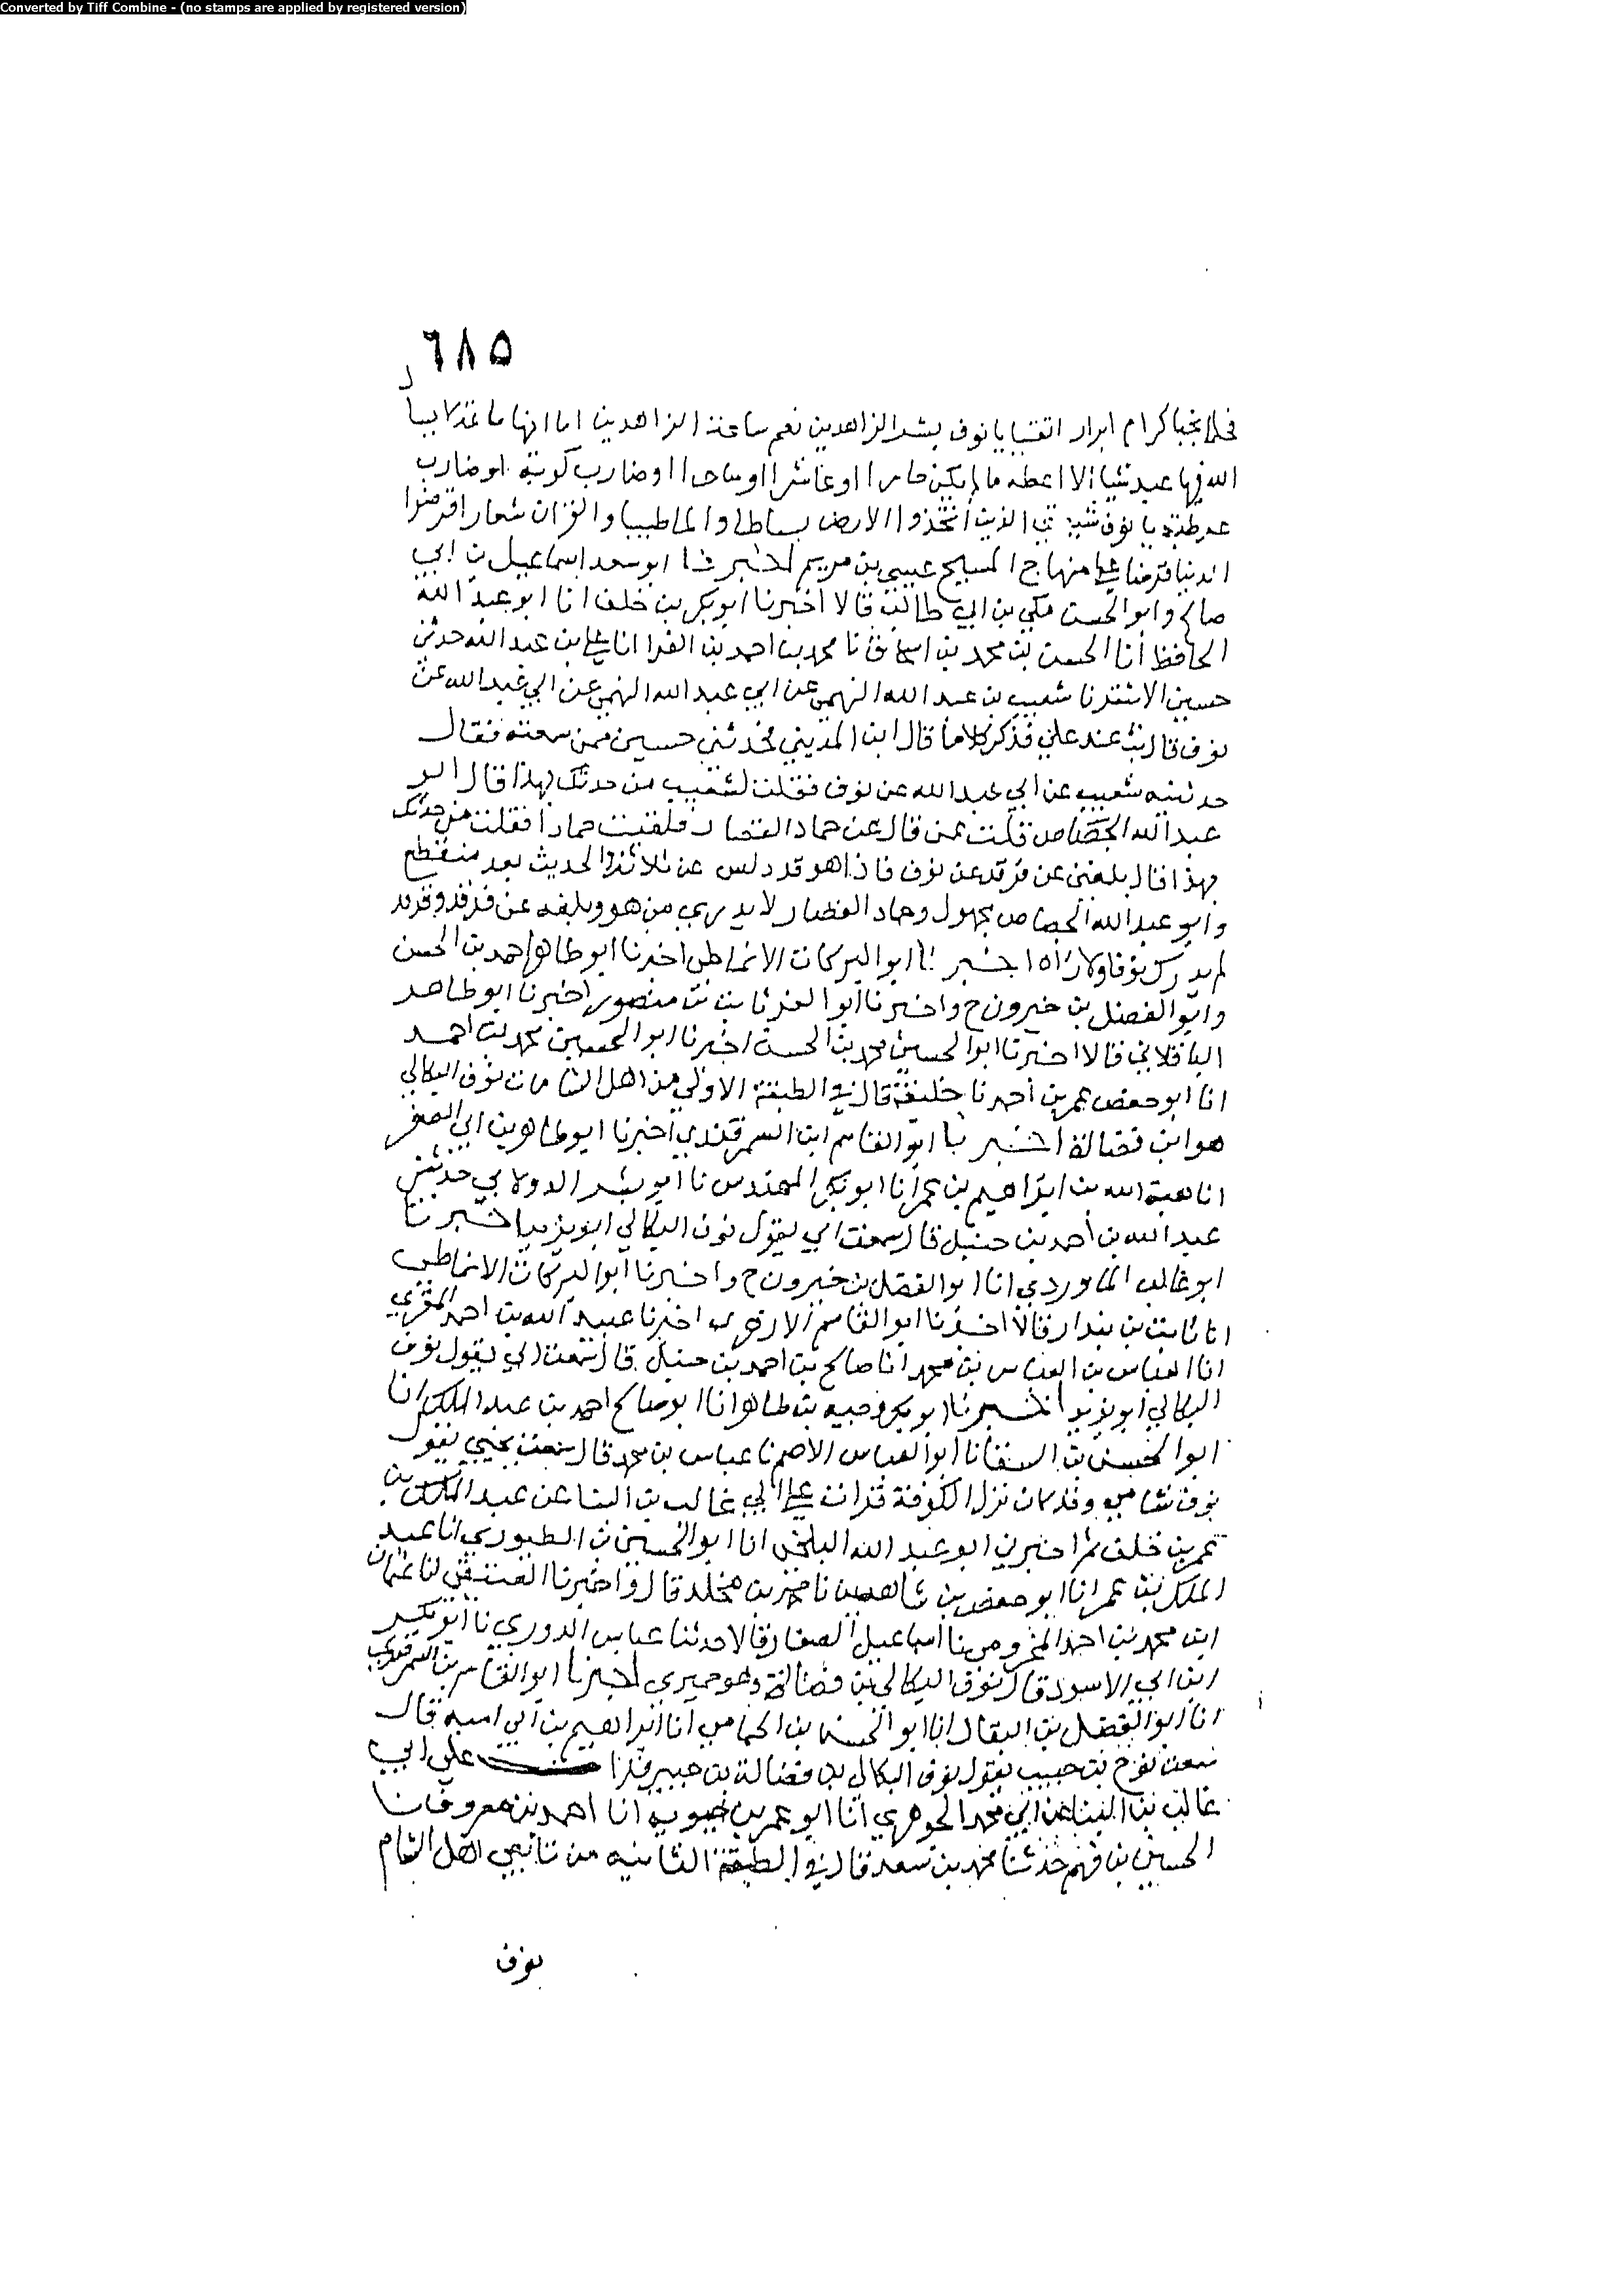 Converted by Tiff Combine - (no stamps are applied by registered version)
٦٨٥
كرام ابرار اتقيا يا نوف بشر الزاهدين نعم ساعة الزاهدين اما انها
الله فيها عبد شيا الا اعطه ما لم يكن او عاشرا او ساحرا او ضارب كوبة او ضارب
عرطبة يا نوف الذين اتخذوا الارض بساطا والما طيبا والقران شعارا قرضوا
الدنيا قرضا على منهاج المسيح عيسى بن مريم اخبرنا ابو سعد اسماعيل بن ابي
صالح وابو الحسن مكي بن ابي طالب قالا اخبرنا ابو بكر بن خلف انا ابو عبد الله
الحافظ انا الحسن بن محمد بن اسحاق نا محمد بن احمد بن البرا نا علي بن عبد الله حدثني
حسين الاشقر نا شعيب بن عبد الله النهمي عن ابي عبد الله النهمي عن ابي عبد الله عن
نوف قال بت عند علي فذكر كلاما قال ابن المديني فحدثني حسين ممن سمعته فقال
حدثنيه شعيب عن ابي عبد الله عن نوف فقلت لشعيب من حدثك بهذا قال ابو
عبد الله الجصاص قلت عمن قال عن حماد القصار فلقيت حمادا فقلت من حدثك
بهذا قال بلغني عن فرقد عن نوف فاذا هو قد دلس عن ثلاثة والحديث بعد منقطع
وابو عبد الله الجصاص مجهول وحماد القصار لا يدري من هو وبلغه عن فرقد وفرقد
لم يدرك نوفا ولا راه اخبرنا ابو البركات الانماطي اخبرنا ابو طاهر احمد بن الحسن
وابو الفضل بن خيرون ح واخبرنا ابو العز ثابت بن منصور اخبرنا ابو طاهر
الباقلاني قالا اخبرنا ابو الحسين محمد بن الحسن اخبرنا ابو الحسين محمد بن احمد
انا ابو حفص عمر بن احمد نا خليفة قال في الطبقة الاولى من اهل الشامات نوف البكالي
هو ابن فضالة اخبرنا ابو القاسم ابن السمرقندي اخبرنا ابو طاهر بن ابي الصقر
انا هبة الله بن ابراهيم بن عمر انا ابو بكر المهندس نا ابو بشر الدولابي حدثني
عبد الله بن احمد بن حنبل قال سمعت ابي يقول نوف البكالي ابو يزيد اخبرنا
ابو غالب الماوردي انا ابو الفضل بن خيرون ح واخبرنا ابو البركات الانماطي
انا ثابت بن بندار قالا اخبرنا ابو القاسم الازهري اخبرنا عبيد الله بن احمد المقري
انا العباس بن العباس بن محمد انا صالح بن احمد بن حنبل قال سمعت ابي يقول نوف
البكالي ابو يزيد اخبرنا ابو بكر وجيه بن طاهر انا ابو صالح احمد بن عبد الملك انا
ابو الحسن بن السقا نا ابو العباس الاصم نا عباس بن محمد قال سمعت يحيى يقول
نوف شامي وقد كان نزل الكوفة قرات على ابي غالب بن البنا عن عبد الملك بن
عمر بن خلف ثم اخبرني ابو عبد الله البلخي انا ابو الحسين بن الطيوري انا عبد
الملك بن عمر انا ابو حفص بن شاهين نا محمد بن مخلد قال واخبرنا العتيقي لنا عثمان
ابن محمد بن احمد المخرمي نا اسماعيل الصفار قالا حدثنا عباس الدوري نا ابو بكير
ابن ابي الاسود قال نوف البكالي بن فضالة وهو حميري اخبرنا ابو القاسم بن السمرقندي
انا ابو الفضل بن البقال انا ابو الحسن بن الحمامي انا ابراهيم بن ابي امية قال
سمعت نوح بن حبيب يقول نوف البكالي بن فضالة بن حبيب قرا علي ابي
غالب بن البنا عن ابي محمد الجوهري انا ابو عمر بن حيويه انا احمد بن معروف نا
الحسين بن فهم حدثنا محمد بن سعد قال في الطبقة الثانيه من تابعي اهل الشام
نوف